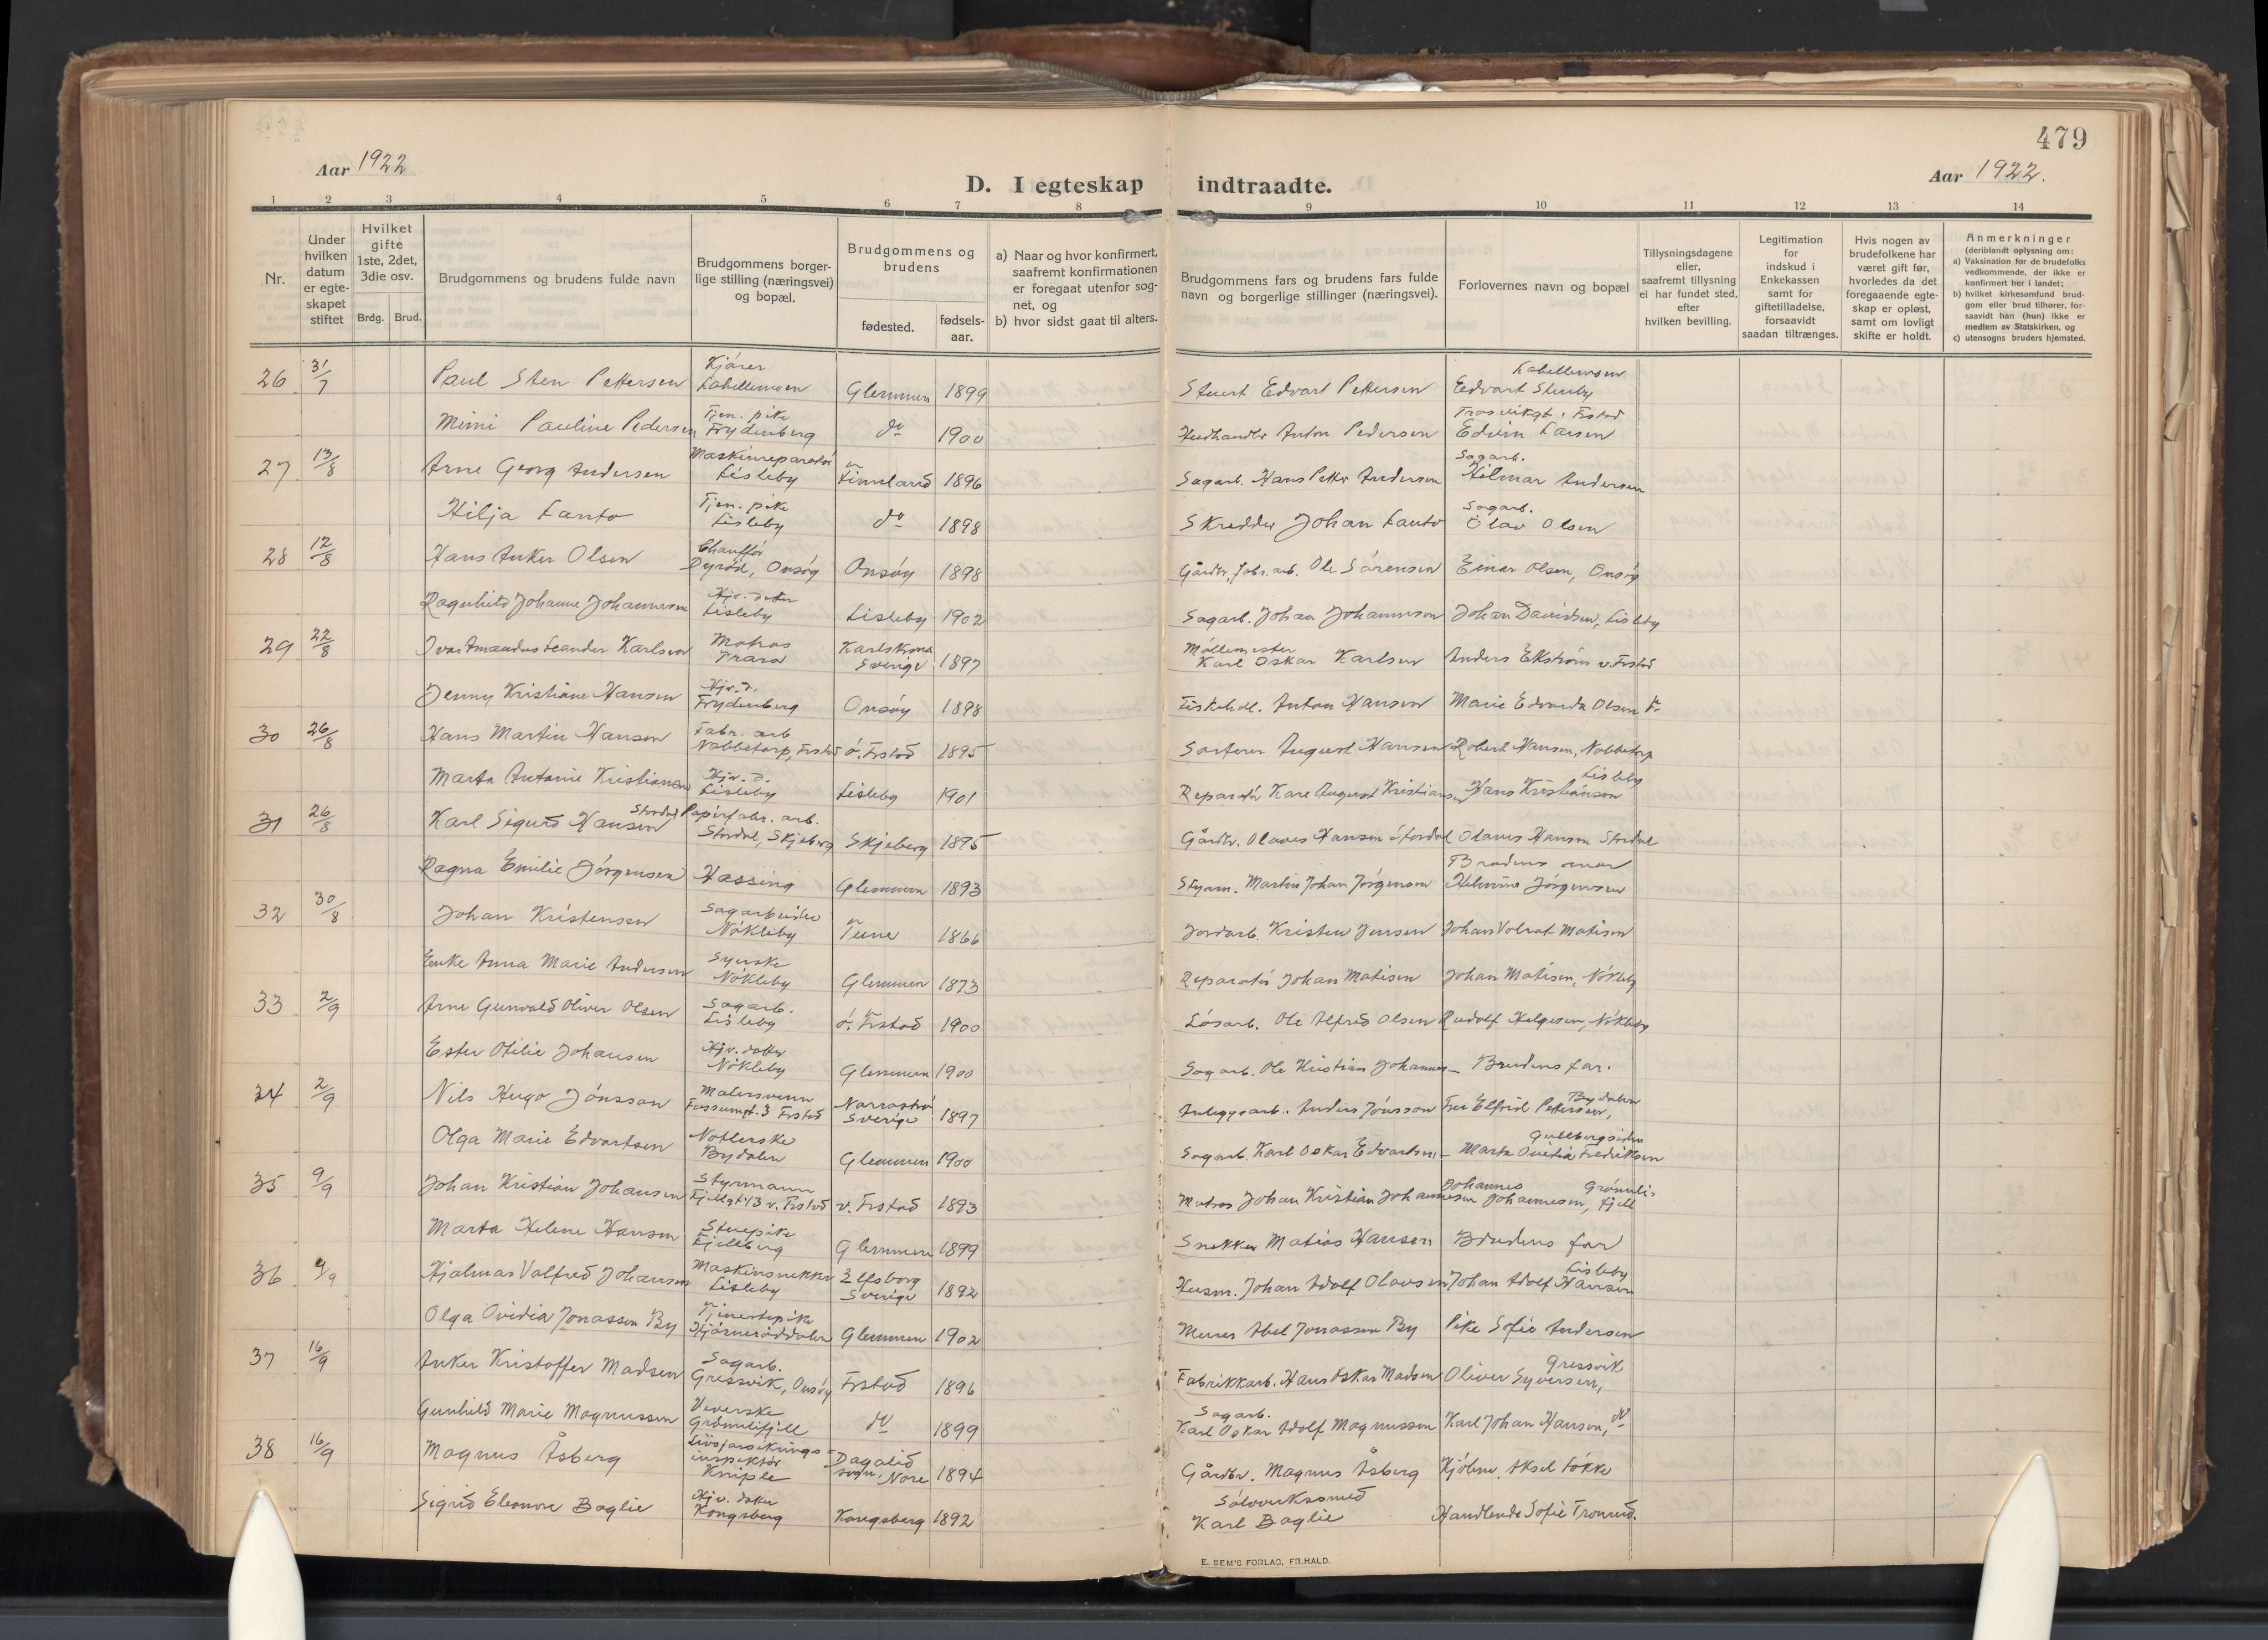 479
Aar 1922
D. I egteskap indtraadte.
Aar 1922.
1 2 3 4 5 6 7 8 9 10 11 12 13 14
Nr.
Under hvilken datum er egte- skapet stiftet
Hvilket gifte 1ste, 2det, 3die osv.
Brdg. Brud.
Brudgommens og brudens fulde navn
Brudgommens borger- lige stilling (næringsvei) og bopæl.
Brudgommens og brudens
fødested.
fødsels- aar.
a) Naar og hvor konfirmert, saafremt konfirmationen er foregaat utenfor sog- net, og
b) hvor sidst gaat til alters.
Brudgommens fars og brudens fars fulde navn og borgerlige stillinger (næringsvei).
Forlovernes navn og bopæl
Tillysningsdagene eller, saafremt tillysning ei har fundet sted, efter hvilken bevilling.
Legitimation for indskud i Enkekassen samt for giftetilladelse, forsaavidt saadan tiltrænges.
Hvis nogen av brudefolkene har været gift før, hvorledes da det foregaaende egte- skap er opløst, samt om lovligt skifte er holdt.
Anmerkninger
(deriblandt oplysning om:
a) Vaksination for de brudefolks vedkommende, der ikke er konfirmert her i landet;
b) hvilket kirkesamfund brud- gom eller brud tilhører, for- saavidt han (hun) ikke er medlem av Statskirken, og
c) utensogns bruders hjemsted.
26 31/7 Paul Sten Pettersen Kjører Labellemoen Glemmen 1899 Edvart Pettersen Labellemoen Edvart Stenby
Mimi Pauline Pedersen Tjen. pike Frydenberg do 1900 Anton Pedersen Trosvikgt. Frstad Edvin Larsen
27 13/8 Arne Georg Andersen Maskinreparatør Lisleby Finnland 1896 Sagarb. Hans Petter Andersen Sagarb. Hilmar Andersen
Hilja Lanto Tjen. pike Lisleby do 1898 Skredder Johan Lanto Sagarb. Olav Olsen
28 12/8 Hans Anker Olsen Chauffør Dyrød, Onsøy Onsøy 1898 Gårdbr, fabr. arb. Ole Sørensen Einar Olsen, Onsøy
Ragnhild Johanne Johannesen Hjv. datter Lisleby Lisleby 1902 Sagarb. Johan Johannesen Johan Davidsen, Lisleby
29 22/8 Leander Karlsson Matros Trara Karlskrona Sverige 1897 Møllemester Karl Oskar Karlsen Anders Ekstrøm v. Frstad
Jenny Kristiane Hansen Hjv. d. Frydenberg Onsøy 1898 Fiskehdl. Anton Hansen Marie Edvarda Olsen
30 26/8 Hans Martin Hansen Fabr. arb Nabbetorp, Frstad ø. Frstad 1895 Sorterer August Hansen Robert Hansen, Nabbetorp
Marta Antonie Kristiansen Hjv. d. Lisleby Lisleby 1901 Reparatør Kare August Kristiansen Lisleby Hans Kristiansen
31 26/8 Karl Sigurd Hansen Stordal Papirfabr. arb. Stordal, Skjeberg Skjeberg 1895 Gårdbr. Olaves Hansen Stordal Olaves Hansen Stordal
Ragna Emilie Jørgensen Hassing Glemmen 1893 Styrm. Martin Johan Jørgensen Brudens mor Helmine Jørgensen
32 30/8 Johan Kristensen Sagarbeider Nøkleby Tune 1866 Jordarb. Kristen Jensen Johan Volrat Matisen
Enke Anna Marie Andersen Syerske Nøkleby Glemmen 1873 Reparatør Johan Matisen Johan Matisen, Nøkleby
33 2/9 Arne Gunvald Oliver Olsen Sagarb. Lisleby ø. Frstad 1900 Løsarb. Ole Alfred Olsen Rudolf Helgesen, Nøkleby
Ester Otilie Johansen Hjv. datter Nøkleby Glemmen 1900 Sagarb. Ole Kristian Johannes- Brudens far.
34 2/9 Nils Hugo Jönsson Malersvenn Fossumgt. 3 Frstad Sverige 1897 Anleggsarb. Anders Jönsson Fru Elfrid Pettersen, Bydalen
Olga Marie Edvartsen Notlerske Bydalen Glemmen 1900 Sagarb. Karl Oskar Edvartsen Marta Ovidia Fredriksen
35 9/9 Johan Kristian Johansen Styrmann Fjellgt 43 v. Frstad v. Frstad 1893 Matros Johan Kristian Johannesen Johannes Johannesen, Grønnlifjell
Marta Helene Hansen Stuepike Fjellberg Glemmen 1899 Snekker Matias Hansen Brudens far
36 9/9 Hjalmar Valfred Johansen Maskinsnekker Lisleby Elfsborg Sverige 1892 Husm. Johan Adolf Olavsen Johan Adolf Hansen Lisleby
Olga Ovidia Jonassen By Tjenestepike Glemmen 1902 Murer Abel Jonassen By Pike Sofie Andersen
37 16/9 Anker Kristoffer Madsen Sagarb. Gressvik, Onsøy Frstad 1896 Fabrikkarb. Hans Oskar Madsen Oliver Syversen, Gressvik
Gunhild Marie Magnussen Veverske Grønnlifjell do 1899 Sagarb. Karl Oskar Adolf Magnussen Karl Johan Hansen, do
38 16/9 Magnus Åsberg Livsforsikrings- inspektør Kniple Dagalid sogn. Nore 1894 Gårdbr. Magnus Åsberg Kjøbm. Aksel Løkke
Sigrid Eleonore Baglie Hjv. datter Kongsberg Kongsberg 1892 Sølvverksmed Karl Baglie Handlende Sofie Tronrud.
E. SEM'S FORLAG, FR.HALD.